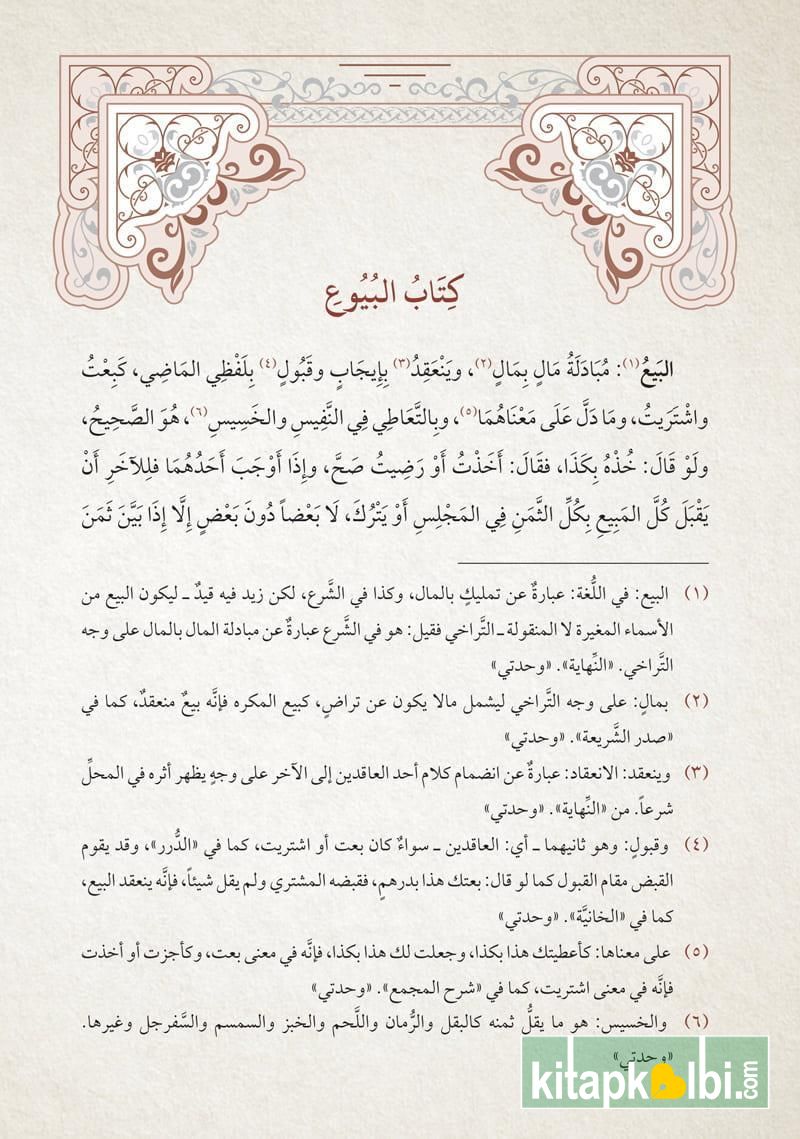 كِتَابُ البُيُوعِ
البَيْعُ(١): مُبَادَلَةُ مَالٍ بِمَالٍ(٢)، ويَنْعَقِدُ(٣) بِإِيجَابٍ وقَبُولٍ(٤) بِلَفْظِي المَاضِي، كَبِعْتُ
واشْتَرَيتُ، ومَا دَلَّ عَلَى مَعْنَاهُمَا(٥)، وبِالتَّعَاطِي فِي النَّفِيسِ والخَسِيسِ(٦)، هُوَ الصَّحِيحُ،
ولَوْ قَالَ: خُذْهُ بِكَذَا، فقَالَ: أَخَذْتُ أَوْ رَضِيتُ صَحَّ، وإِذَا أَوْجَبَ أَحَدُهُمَا فلِلآخَرِ أَنْ
يَقْبَلَ كُلَّ المَبِيعِ بِكُلِّ الثَّمَنِ فِي المَجْلِسِ أَوْ يَتْرُكَ، لَا بَعْضاً دُونَ بَعْضٍ إِلَّا إِذَا بَيَّنَ ثَمَنَ
(١) البيع: في اللُّغة: عبارةٌ عن تمليكٍ بالمال، وكذا في الشَّرع، لكن زيد فيه قيدٌ ـ ليكون البيع من
الأسماء المغيرة لا المنقولة ـ التَّراخي فقيل: هو في الشَّرع عبارةٌ عن مبادلة المال بالمال على وجه
التَّراخي. «النِّهاية». «وحدتي»
(٢) بمالٍ: على وجه التَّراخي ليشمل مالا يكون عن تراضٍ، كبيع المكره فإنَّه بيعٌ منعقدٌ، كما في
«صدر الشَّريعة». «وحدتي»
(٣) وينعقد: الانعقاد: عبارةٌ عن انضمام كلام أحد العاقدين إلى الآخر على وجهٍ يظهر أثره في المحلِّ
شرعاً. من «النِّهاية». «وحدتي»
(٤) وقبولٍ: وهو ثانيهما ـ أي: العاقدين ـ سواءٌ كان بعت أو اشتريت، كما في «الدُّرر»، وقد يقوم
القبض مقام القبول كما لو قال: بعتك هذا بدرهمٍ، فقبضه المشتري ولم يقل شيئاً، فإنَّه ينعقد البيع،
كما في «الخانيَّة». «وحدتي»
(٥) على معناها: كأعطيتك هذا بكذا، وجعلت لك هذا بكذا، فإنَّه في معنى بعت، وكأجزت أو أخذت
فإنَّه في معنى اشتريت، كما في «شرح المجمع». «وحدتي»
(٦) والخسيس: هو ما يقلُّ ثمنه كالبقل والرُّمان واللَّحم والخبز والسمسم والسَّفرجل وغيرها.
«وحدتي»
kitapkalbi.com